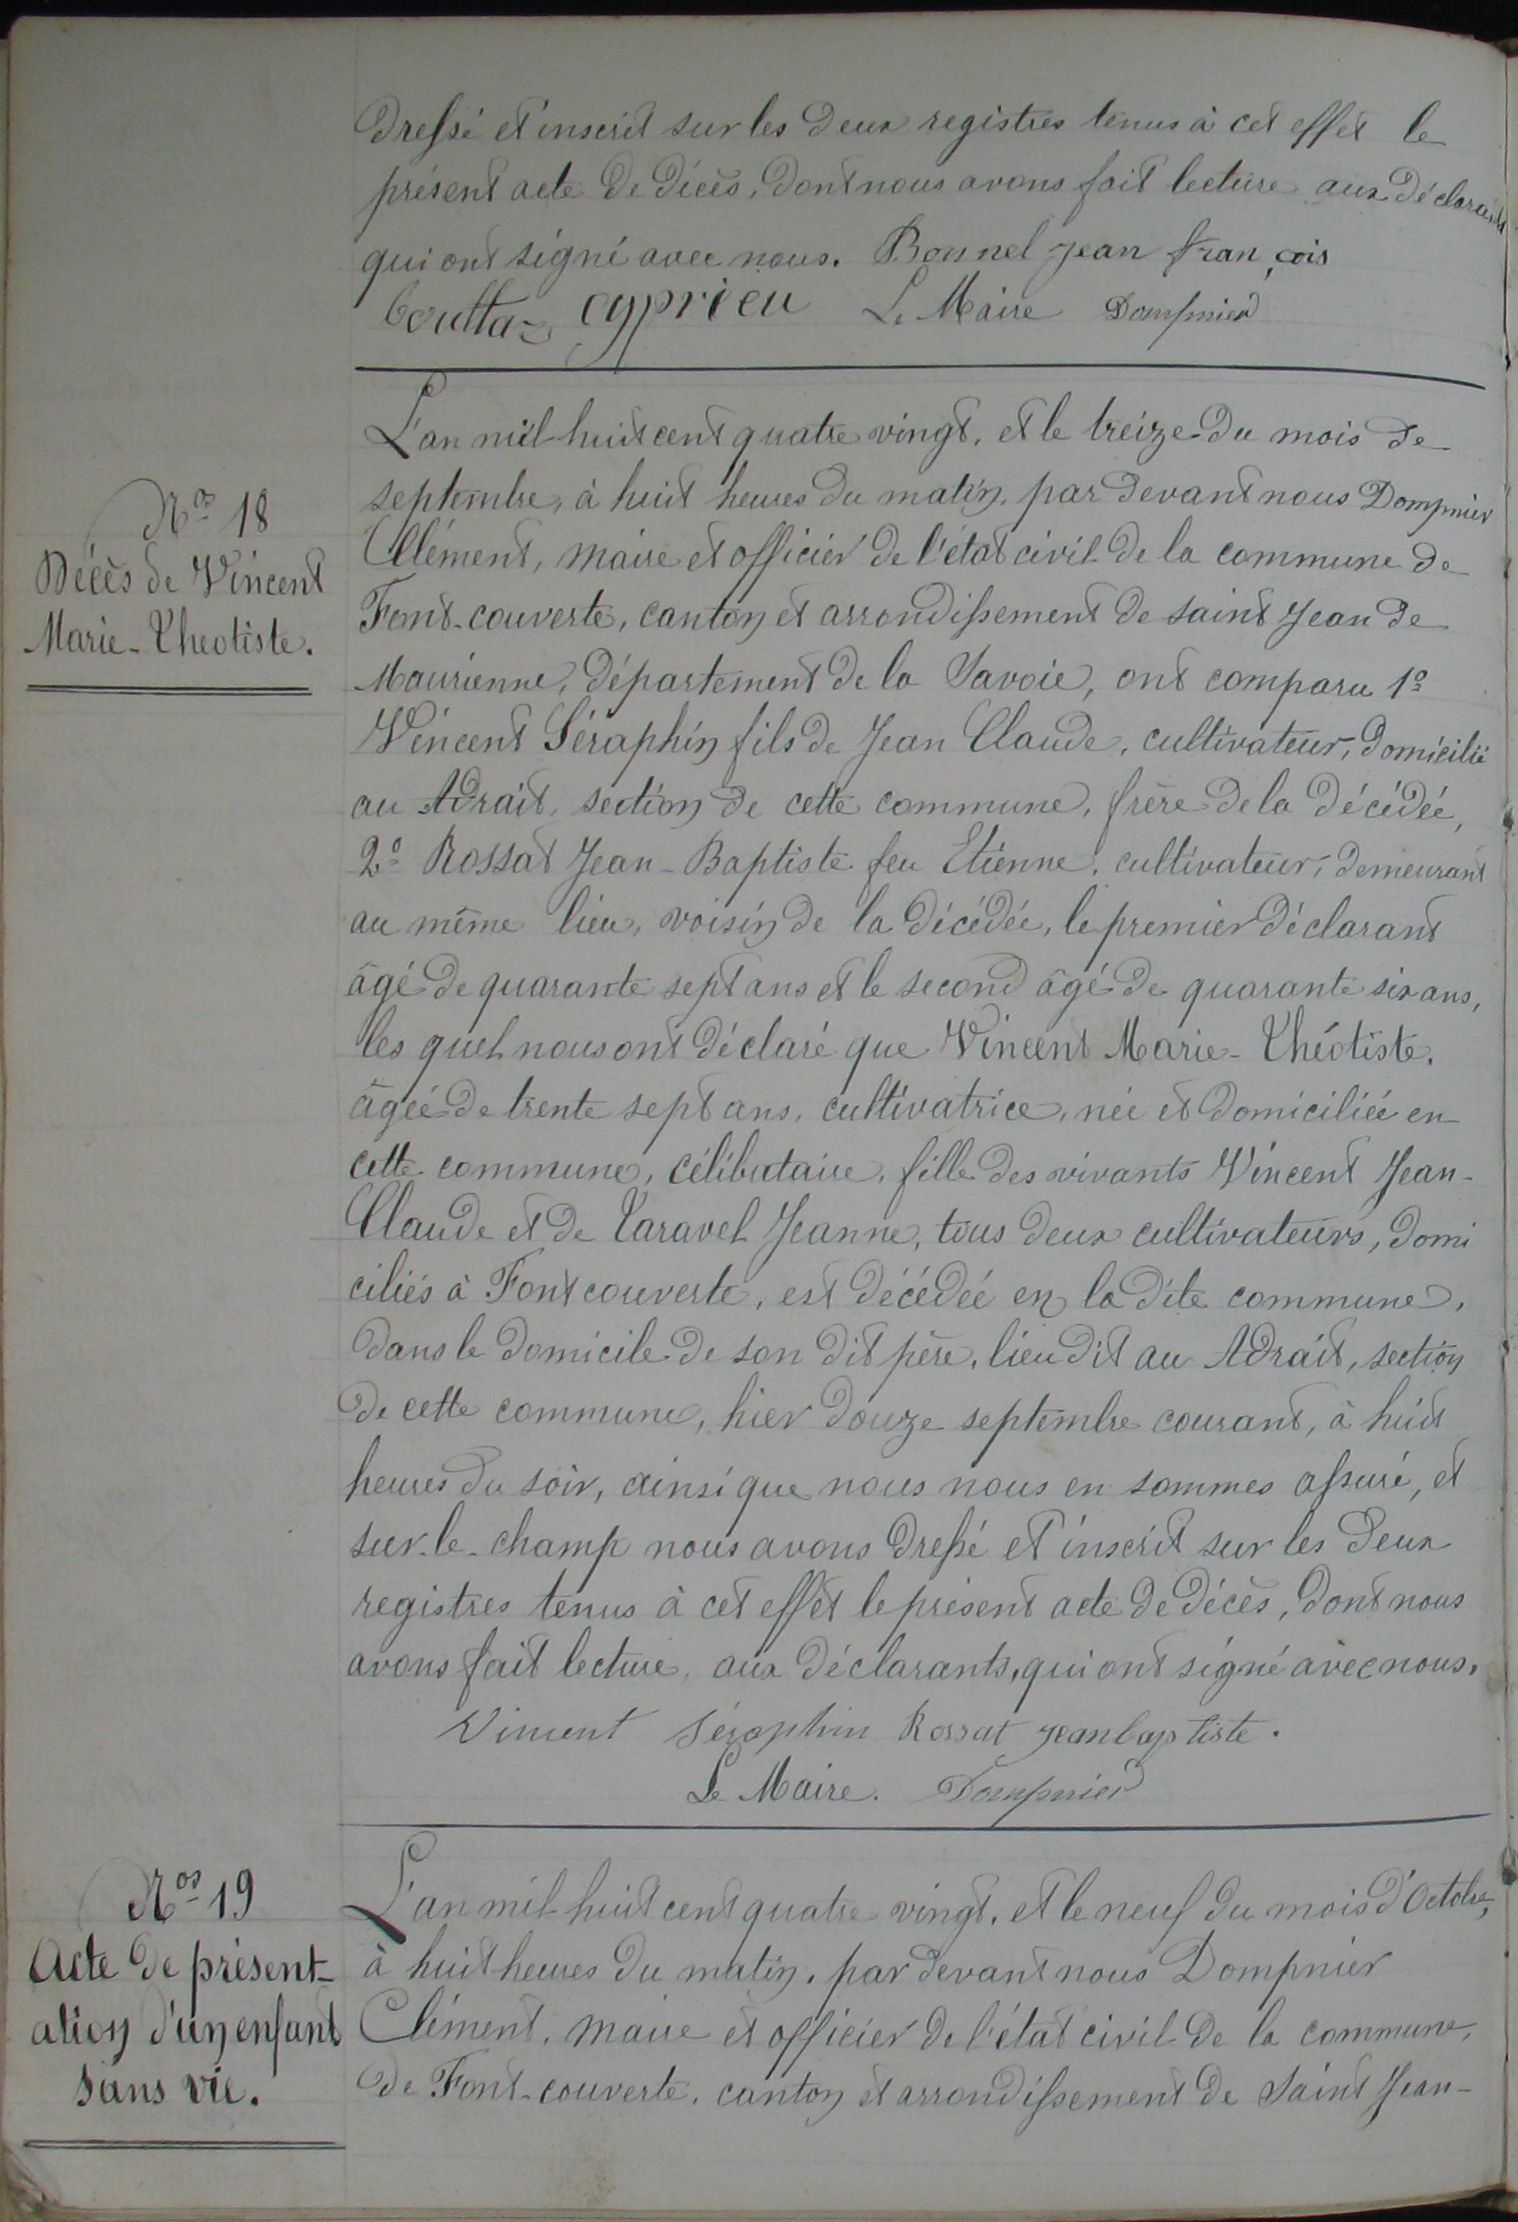 dressé et inscrit sur les deux registres tenus à cet effet le
présent acte de décès, dont nous avons fait lecture aux déclarants
qui ont signé avec nous. Bonnel jean françois
bouttaz cyprien Le Maire Dompnier
L'an mil huit cent quatre vingt, et le treize du mois de
septembre, à huit heures du matin, par devant nous Dompnier
Clément, maire et officier de l'état civil de la commune de
Font-couverte, canton et arrondissement de saint Jean de
Maurienne, département de la Savoie, ont comparu 1º
Vincent Séraphin fils de Jean Claude, cultivateur, domicilié
au Adrait, section de cette commune, frère de la décédée,
2º Rossat Jean-Baptiste feu Etienne, cultivateur, demeurant
au même lieu, voisin de la décédée, le premier déclarant
âgé de quarante sept ans et le second âgé de quarante six ans,
les quels nous ont déclaré que Vincent Marie-Théotiste,
âgée de trente sept ans, cultivatrice, née et domiciliée en
cette commune, célibataire, fille des vivants Vincent Jean-
Claude et de Taravel Jeanne, tous deux cultivateurs, domi
ciliés à Fontcouverte, est décédée en la dite commune,
dans le domicile de son dit père, lieu dit au Adrait, section
de cette commune, hier douze septembre courant, à huit
heures du soir, ainsi que nous nous en sommes assuré, et
sur-le-champ nous avons dressé et inscrit sur les deux
registres tenus à cet effet le présent acte de décès, dont nous
avons fait lecture, aux déclarants, qui ont signé avec nous.
Vincent Séraphin Rossat jean baptiste.
Le Maire. Dompnier
Nº 18
Décès de Vincent
Marie-Theotiste.
L'an mil huit cent quatre vingt, et le neuf du mois d'Octobre,
à huit heures du matin, par devant nous Dompnier
Clément, maire et officier de l'état civil de la commune,
de Font-couverte, canton et arrondissement de Saint Jean-
Nos 19
Acte de présent-
ation d'un enfant
sans vie.